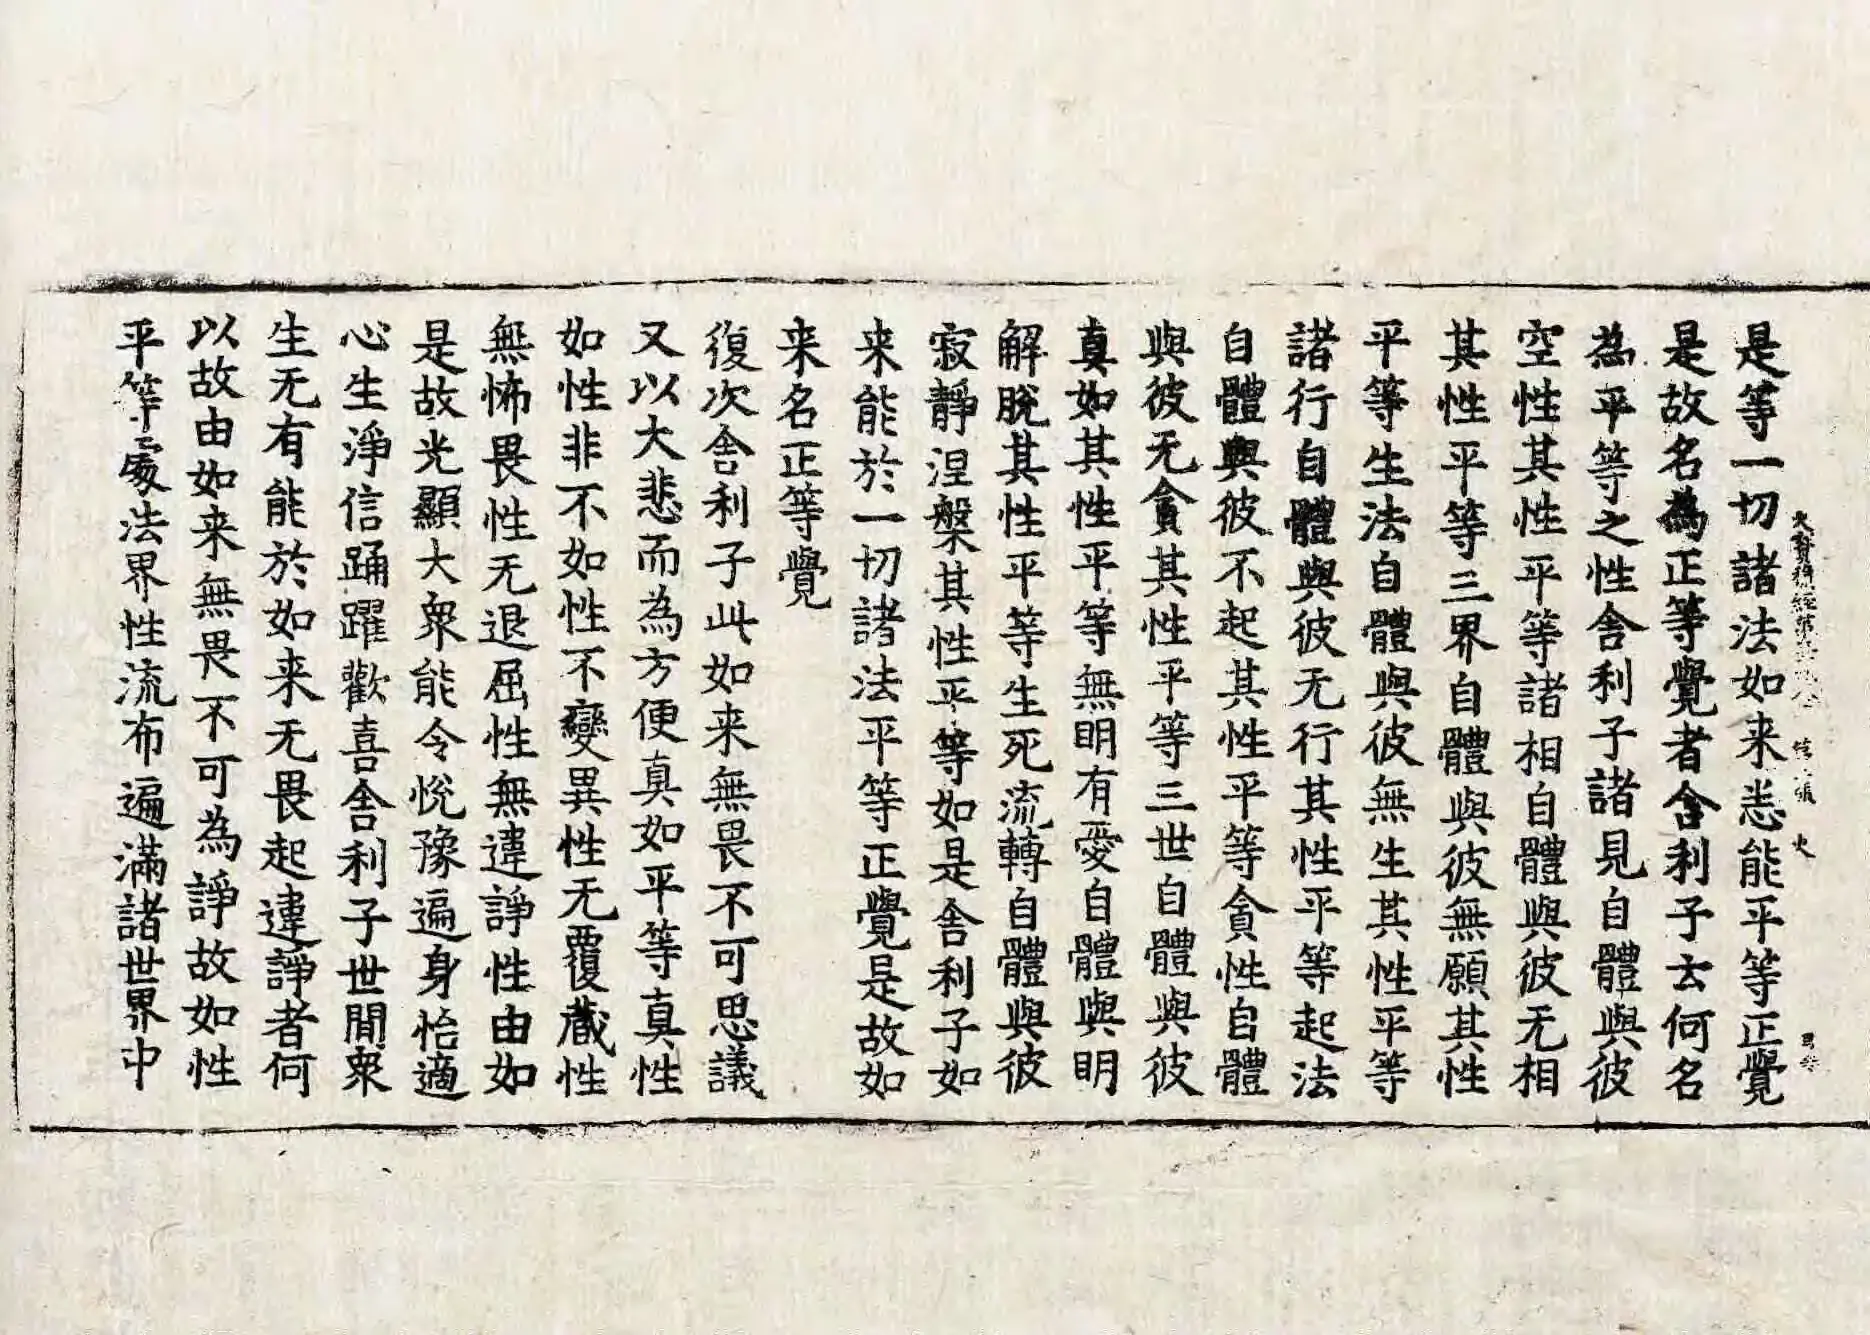 是等一切諸法如来悉能平等正覺
是故名為正等覺者舎利子云何名
為平等之性舎利子諸見自體與彼
空性其性平等諸相自體與彼无相
其性平等三界自體與彼無願其性
平等生法自體與彼無生其性平等
諸行自體與彼无行其性平等起法
自體與彼不起其性平等貪性自體
與彼无貪其性平等三世自體與彼
真如其性平等無明有愛自體與明
解脫其性平等生死流轉自體與彼
寂靜涅槃其性平等如是舎利子如
来能於一切諸法平等正覺是故如
来名正等覺
復次舎利子此如来無畏不可思議
又以大悲而為方便真如平等真性
如性非不如性不變異性无覆藏性
無怖畏性无退屈性無違諍性由如
是故光顯大衆能令悅豫遍身怡適
心生淨信踊躍歡喜舎利子世間衆
生无有能於如来无畏起違諍者何
以故由如来無畏不可為諍故如性
平等處法界性流布遍滿諸世界中